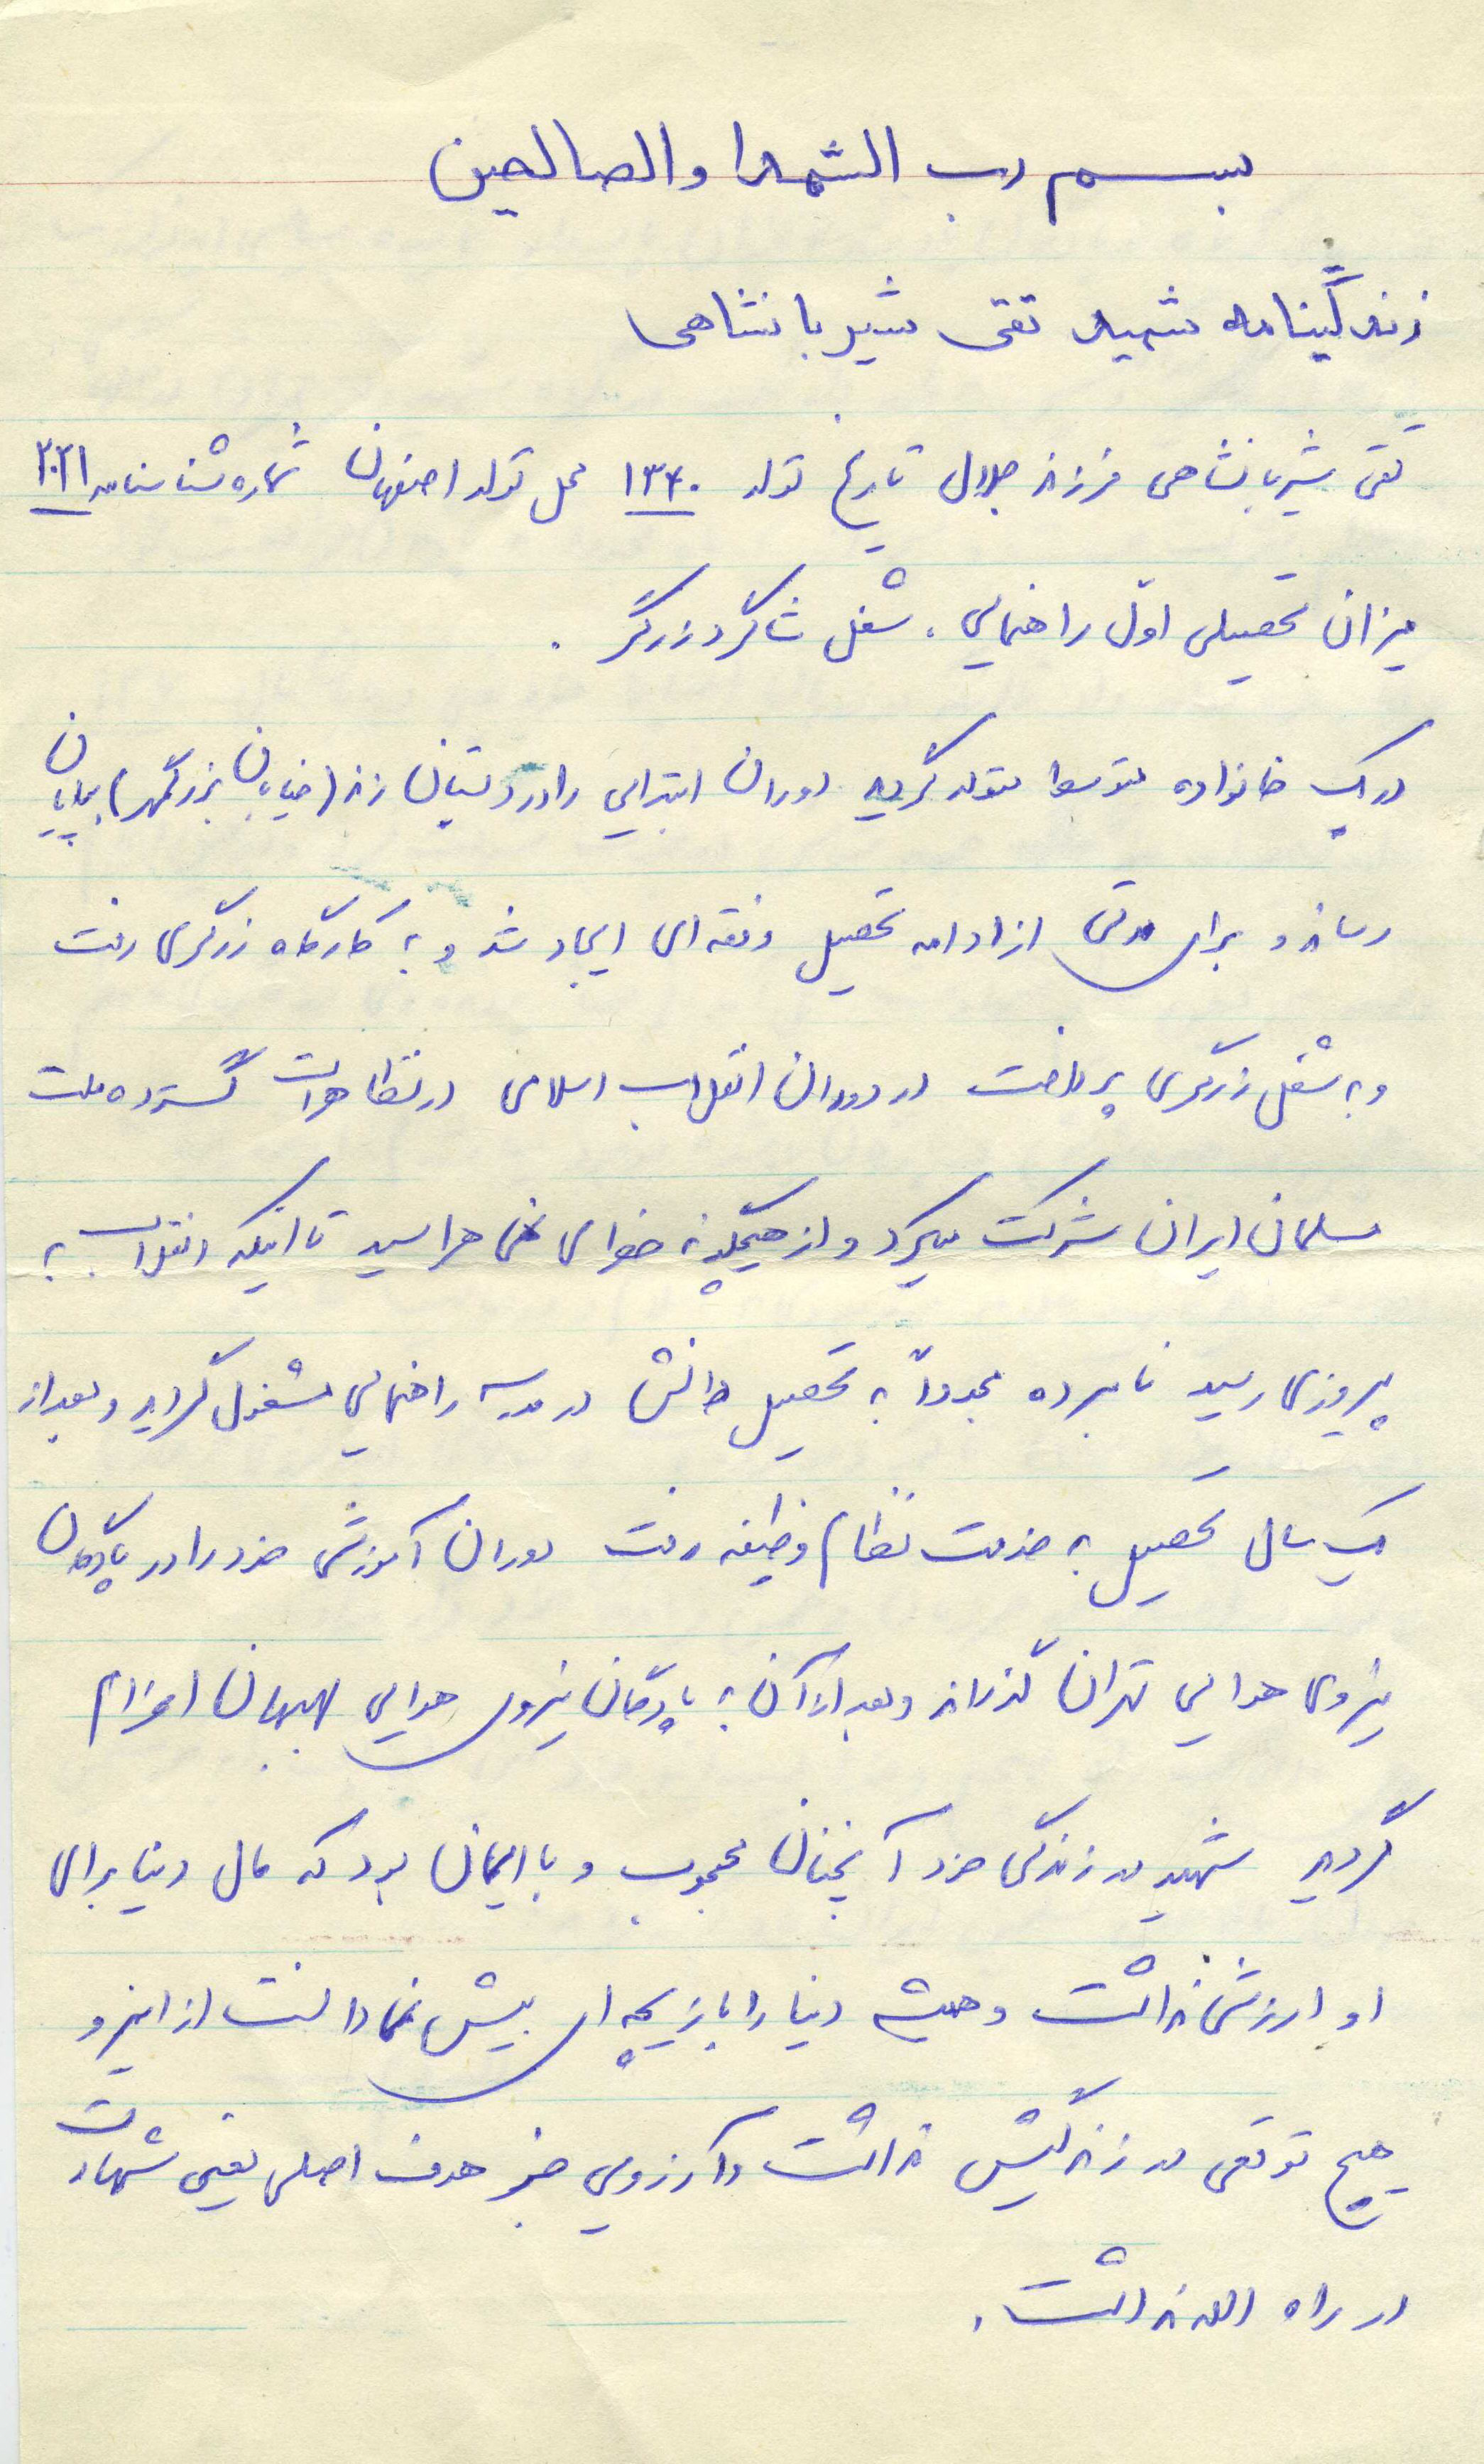 بسم رب الشهدا والصالحین
زندگینامه شهید تقی شیربانشاهی
تقی شیربانشاهی فرزند جلال تاریخ تولد ۱۳۴۰ محل تولد اصفهان شماره شناسنامه ۲۰۲۱
میزان تحصیلی اوّل راهنمایی، شغل شاگرد زرگر.
در یک خانواده متوسط متولد گردید دوران ابتدایی را در دبستان زند (خیابان بزرگمهر) بپایان
رساند و برای مدتی از ادامه تحصیل وقفه ای ایجاد شد و به کارگاه زرگری رفت
و به شغل زرگری پرداخت در دوران انقلاب اسلامی در تظاهرات گسترده ملت
مسلمان ایران شرکت میکرد و از هیچگونه خطرای نمی هراسید تا اینکه انقلاب به
پیروزی رسید نامبرده مجدداً به تحصیل دانش در مدرسه راهنمایی مشغول گردید و بعد از
یک سال تحصیل به خدمت نظام وظیفه رفت دوران آموزشی خود را در پادگان
نیروی هوایی تهران گذراند و بعد از آن به پادگان نیروی هوایی بهبهان اعزام
گردید شهید در زندگی خود آنچنان محجوب و با ایمان بود که مال دنیا برای
او ارزشی نداشت و همیشه دنیا را بازیچه ای بیش نمی دانست از اینرو
هیچ توقعی در زندگیش نداشت و آرزویی جز هدف اصلی یعنی شهادت
در راه الله نداشت.